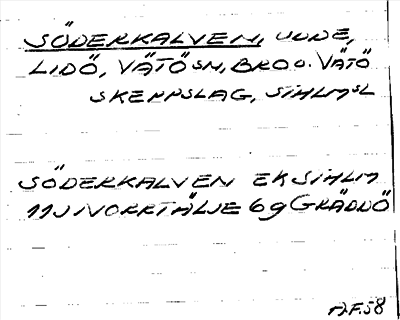 SÖDERKALVEN, UDDE,
LIDÖ, VÄTÖ SN, BRO O. VÄTÖ
SKEPPSLAG, STHLMSL
SÖDERKALVEN EK STHLM
11J NORRTÄLJE 6g GRÄDDÖ
A.F.58